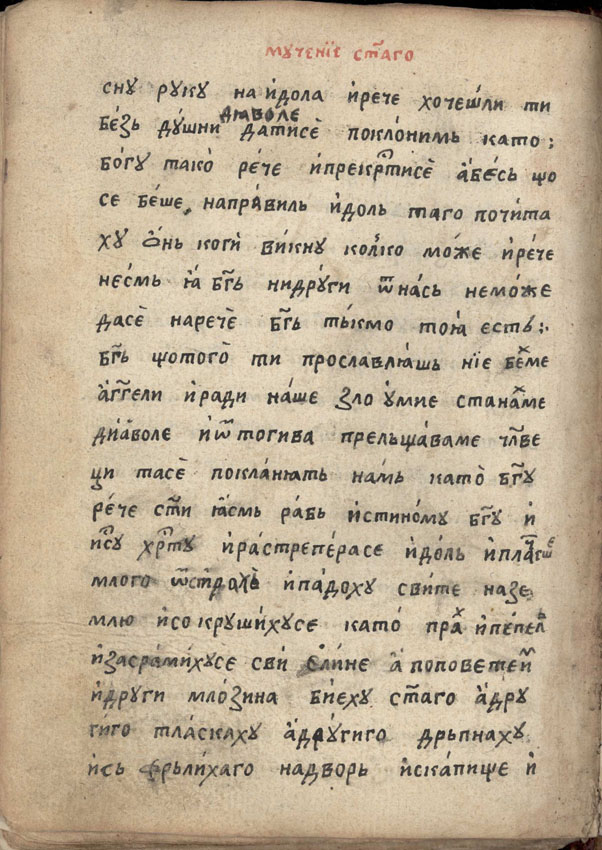 мꙋче́нїе ст҃аго
снꙋ рꙋкꙋ на и́дола и́рече хоче́шли ти
бе́зь дꙋ́шни дїа́воле да́тисѐ покло́нимь като
бо́гꙋ тако̀ ре́че и́прекрⷭ҇тисѐ а́бе́сь що
се бе́ше, напра́виль и́доль таго почи́та
хꙋ ѻ́нь коги̇̀ ви́кнꙋ колко мо́же и́рече
несмь ꙗ́ бг҃ь нидрꙋ́ги ѿна́сь немо́же
дасѐ нарече̇̀ бг҃ь ты́кмо тоꙗ̀ есть:
бг҃ь щотого̀ ти прославлꙗ́шь нїе бе́хме
а́гг҃ели и́ради на́ше зло ꙋ́мие стана́хме
дїа́воле и́ѿтогива прельща́ваме чл҃ве
ци тасѐ покла́нꙗть на́мь като̀ бг҃ꙋ
ре́че ст҃и ꙗ́смь ра́бь и́стиномꙋ бг҃ꙋ и́
и҆сⷭ҇ꙋ хрⷭ҇тꙋ и́растрепе́расе и́до́ль
млого ѿстрахь ипа́дохꙋ сви́те назе
млю и́со крꙋши́хꙋсе като̀ пра́х ипе́пель
и́засра́михꙋсе сви̇́ е́ли́не а́ поповетеи́м
и́дрꙋги мло́зина бїехꙋ ст҃аго а́дрꙋ
гиго тла́скахꙋ а́дрꙋ́гиго дрьпнахꙋ
и́сь фрьли́хаго надворь и́скапище и́